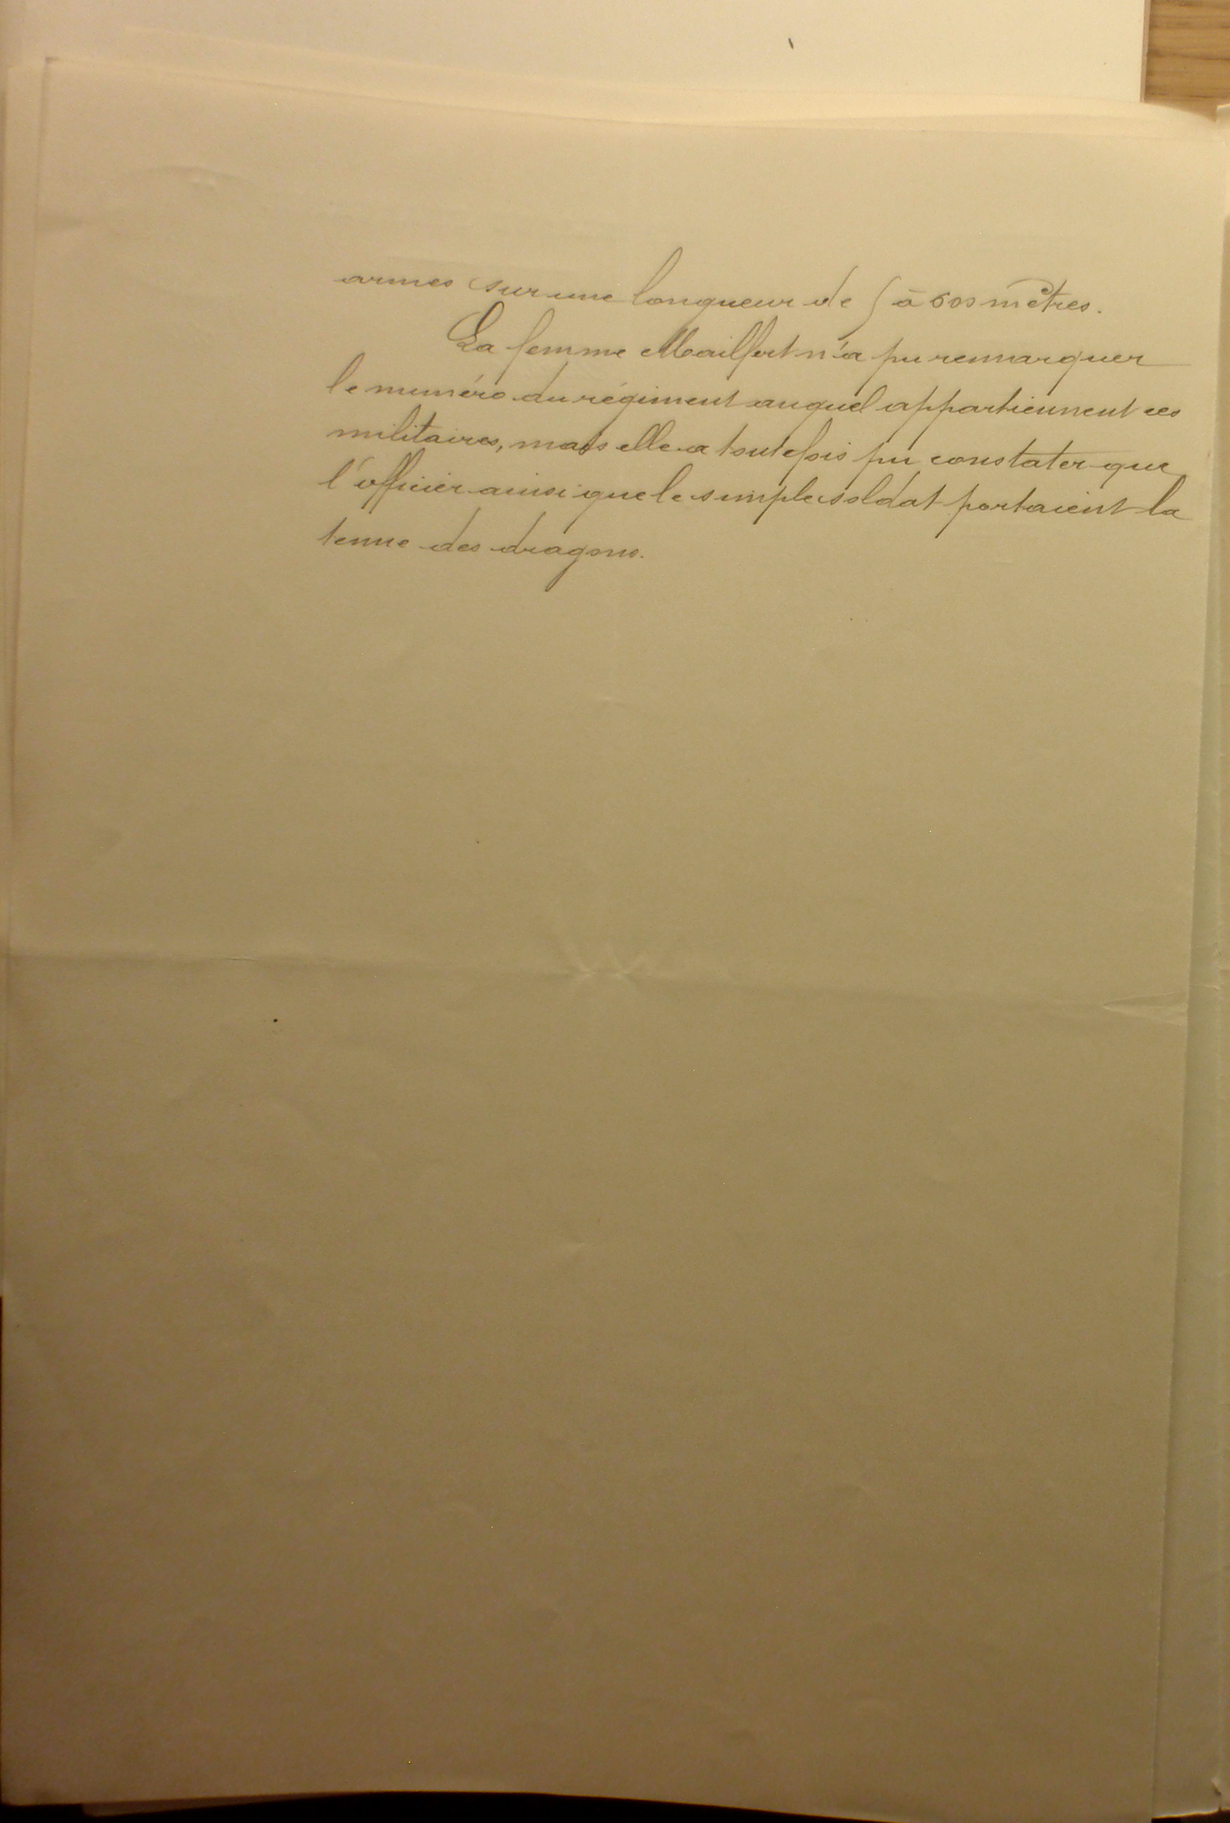 armes sur une longueur de 5 à 600 mètres.
La femme Mailfert n'a pu remarquer
le numéro du régiment auquel appartiennent ces
militaires, mais elle a toutefois pu constater que
l'officier ainsi que le simple soldat portaient la
tenue des dragons.